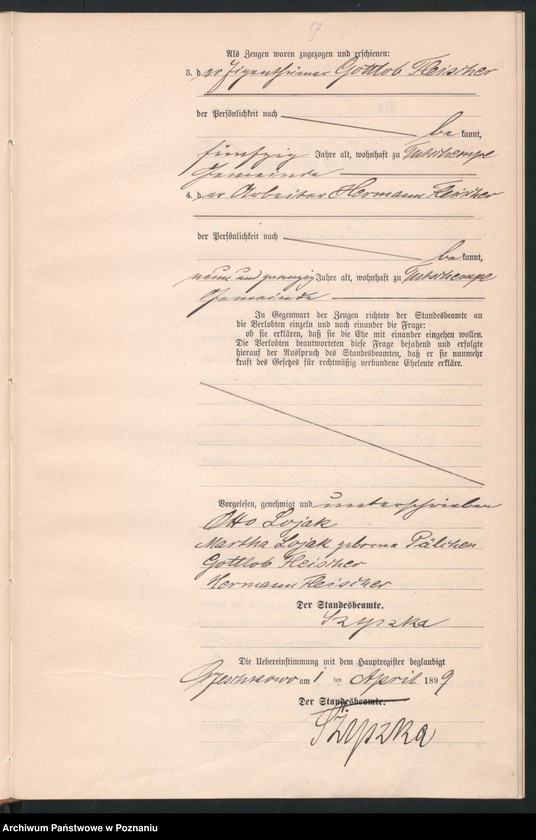 17
Als Zeugen waren zugezogen und erschienen:
3. der Eigenthümer Gottlob Fleischer
der Persönlichkeit nach
bekannt,
fünfzig Jahre alt, wohnhaft zu
Gemeinde
4. der Arbeiter Hermann Fleischer
der Persönlichkeit nach
bekannt,
neun und zwanzig Jahre alt, wohnhaft zu
Gemeinde
In Gegenwart der Zeugen richtete der Standesbeamte an
die Verlobten einzeln und nach einander die Frage:
ob sie erklären, daß sie die Ehe mit einander eingehen wollen.
Die Verlobten beantworteten diese Frage bejahend und erfolgte
hierauf der Ausspruch des Standesbeamten, daß er sie nunmehr
kraft des Gesetzes für rechtmäßig verbundene Eheleute erkläre.
Vorgelesen, genehmigt und unterschrieben
Otto Lojak
Martha Lojak geborne Pälchen
Gottlob Fleischer
Hermann Fleischer
Der Standesbeamte.
Szyszka
Die Uebereinstimmung mit dem Hauptregister beglaubigt
am 1 ten April 1899
Der Standesbeamte.
Szyszka
Archiwum Państwowe w Poznaniu